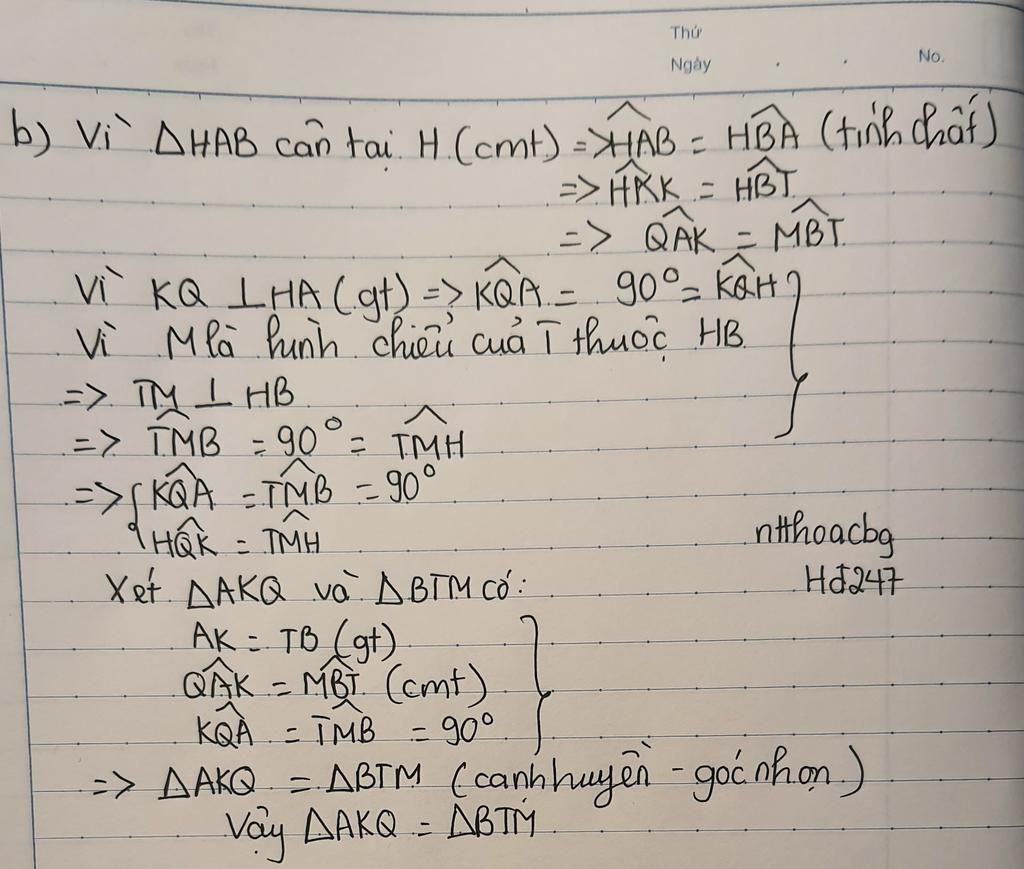 Thứ
Ngày
No.
b) Vì ΔHAB cân tại H (cmt) => HAB̂ = HBÂ (tính chất)
=> HÂK = HB̂T
=> QÂK = MB̂T
Vì KQ ⊥ HA (gt) => KQ̂A = 90° = KQ̂H
Vì M là hình chiếu của T thuộc HB
=> TM ⊥ HB
=> TM̂B = 90° = TM̂H
=> { KQ̂A = TM̂B = 90°
HQ̂K = TM̂H
ntthoacbg
Hđ247
Xét ΔAKQ và ΔBTM có:
AK = TB (gt)
QÂK = MB̂T (cmt)
KQ̂A = TM̂B = 90°
=> ΔAKQ = ΔBTM (cạnh huyền - góc nhọn)
Vậy ΔAKQ = ΔBTM